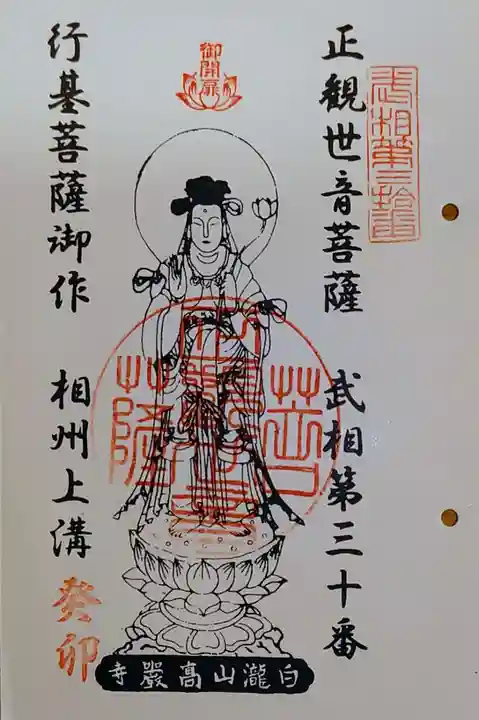 武相第三拾番
正観世音菩薩 武相第三十番
御開扉
行基菩薩御作 相州上溝
癸卯
白瀧山高巖寺